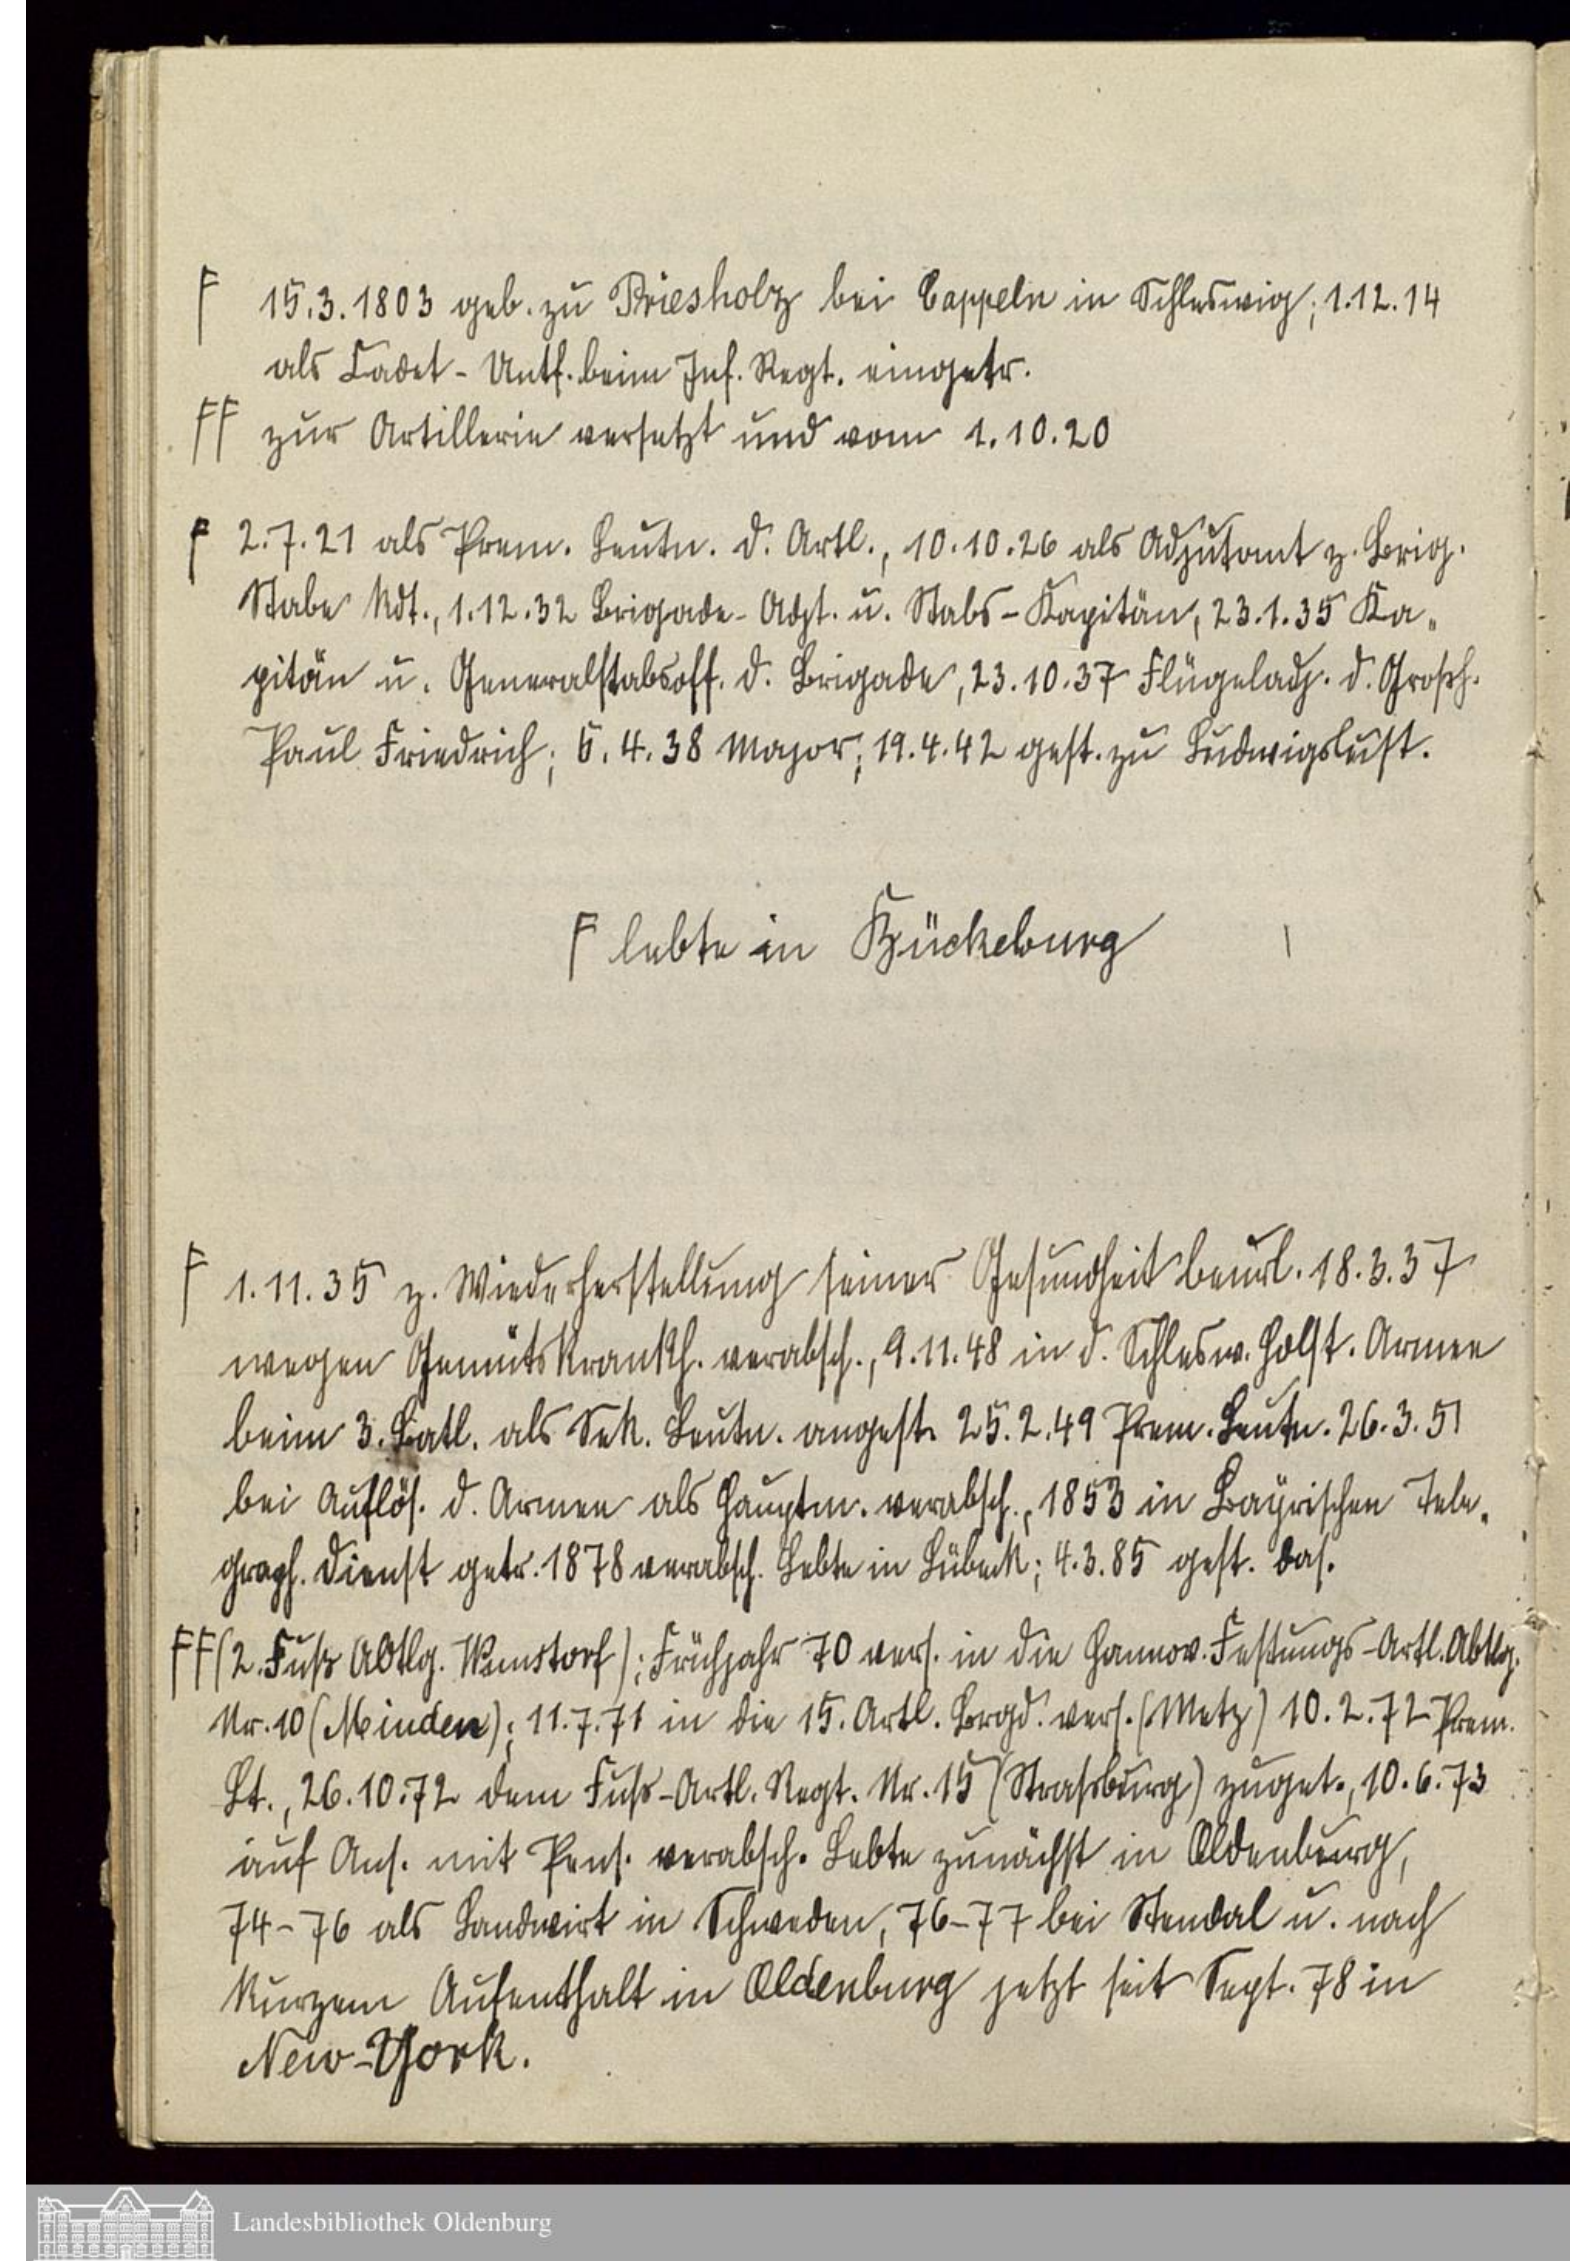 F 15.3.1803 geb. zu Priesholz bei Cappeln in Schleswig; 1.12.14
als Cadet-Untf. beim Inf. Regt. eingetr.
FF zur Artillerie versetzt und vom 1.10.20
F 2.7.21 als Prem. Leutn. d. Artl., 10.10.26 als Adjutant z. Brig.
Stabe kdt., 1.12.32 Brigade-Adjt. u. Stabs-Kapitän, 23.1.35 Ka„
pitän u. Generalstabsoff. d. Brigade, 23.10.37 Flügeladj. d. Grosh.
Paul Friedrich; 6.4.38 Major; 19.4.42 gest. zu Ludwigslust.
F lebte in Bückeburg
F 1.11.35 z. Wiederherstellung seiner Gesundheit beurl. 18.3.37
wegen Gemütskrankh. verabsch., 9.11.48 in d. Schlesw. Holst. Armee
beim 3. Batl. als Sek. Leutn. angest. 25.2.49 Prem. Leutn. 26.3.51
bei Auflös. d. Armee als Hauptm. verabsch., 1853 in Bayrischen Tele„
graph. dienst getr. 1878 verabsch. Lebte in Lübeck; 4.3.85 gest. das.
FF (2. Fuß Abtlg. Wunstorf); Frühjahr 70 vers. in die Hannov. Festungs-Artl. Abtlg.
Nr. 10 (Minden); 11.7.71 in die 15. Artl. Brgd. vers. (Metz) 10.2.72 Prem.
Lt., 26.10.72 dem Fuß-Artl. Regt. Nr. 15 (Strassburg) zuget., 10.6.73
auf Ans. mit Pens. verabsch. Lebte zunächst in Oldenburg,
74-76 als Landwirt in Schweden, 76-77 bei Stendal u. nach
kurzem Aufenthalt in Oldenburg jetzt seit Sept. 78 in
New-York.
Landesbibliothek Oldenburg